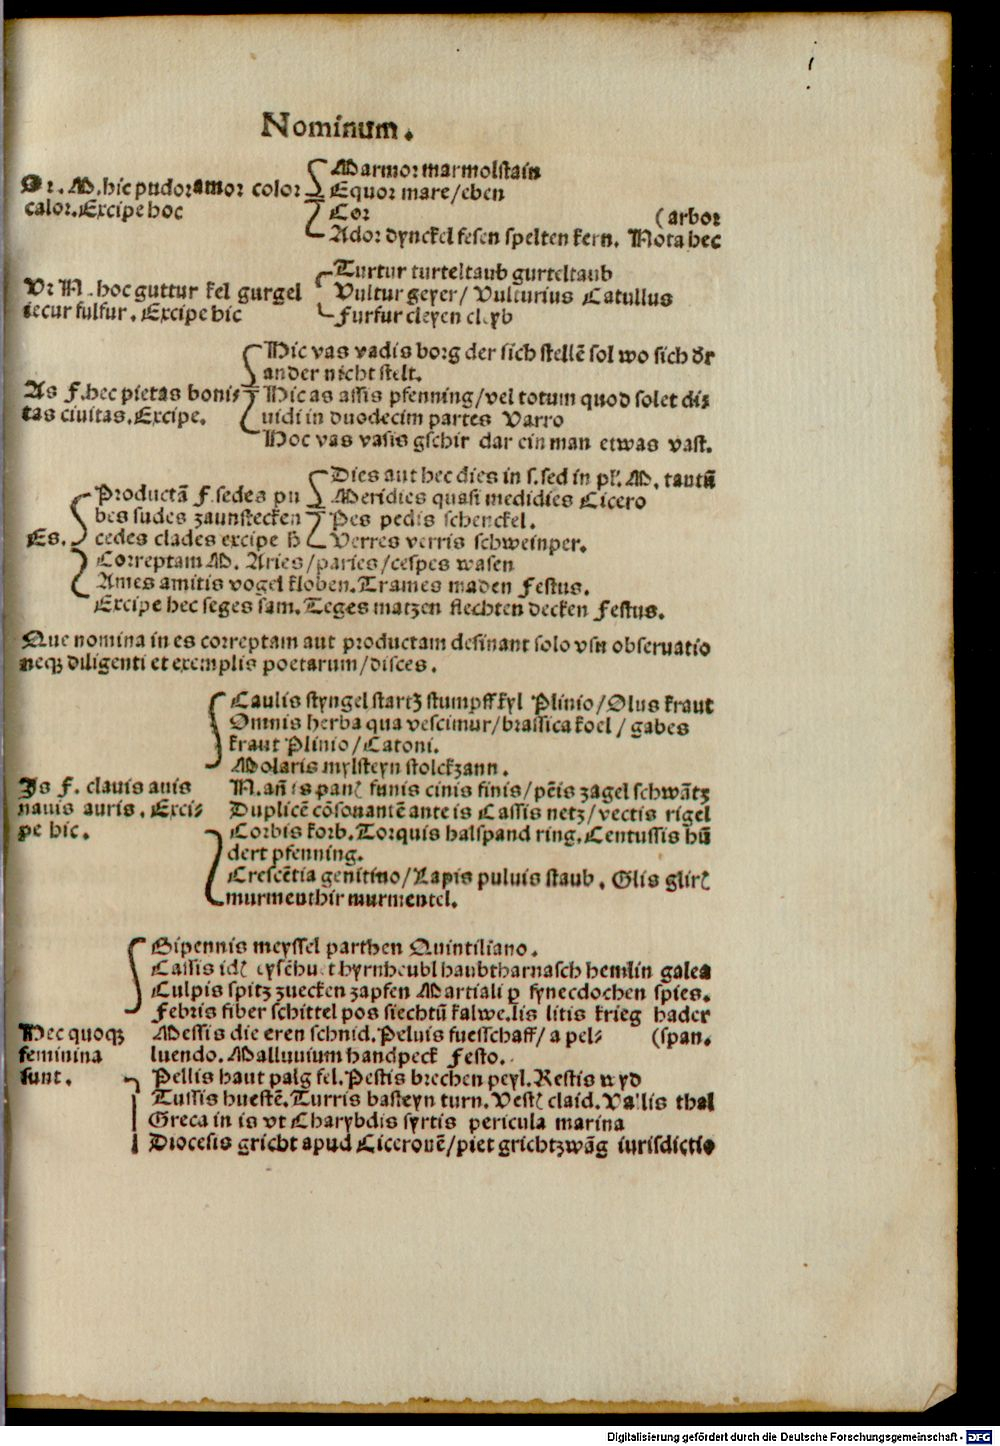 Nominum.
Or. M. hic pudor amor color
calor. Excipe hoc
Marmor marmolstain
Equor mare/eben
Cor (arbor
Ador dynckel fesen spelten kern. Nota hec
Vr N. hoc guttur kel gurgel
iecur fulfur. Excipe hic
Turtur turteltaub gurteltaub
Vultur geyer/ Vulturius Catullus
Furfur cleyen cleyb
As F. hec pietas boni⸗
tas ciuitas. Excipe.
Hic vas vadis borg der sich stellē sol wo sich dr̄
ander nicht stelt.
Hic as assis pfenning/vel totum quod solet di⸗
uidi in duodecim partes Varro
Hoc vas vasis gschir dar ein man etwas vast.
Es.
Productā F. sedes pu
bes sudes zaunstecken
cedes clades excipe h̄
Dies aut hec dies in s. sed in pl'. M. tantū
Meridies quasi medidies Cicero
Pes pedis schenckel.
Verres verris schweinper.
Correptam M. Aries/paries/cespes wasen
Ames amitis vogel kloben. Trames maden Festus.
Excipe hec seges sam. Teges matzen flechten decken Festus.
Que nomina in es correptam aut productam desinant solo vsu obseruatio
neqꝫ diligenti et exemplis poetarum/disces.
Is F. clauis auis
nauis auris. Exci⸗
pe hic.
Caulis styngel startz stumpff kyl Plinio/Olus kraut
Omnis herba qua vescimur/brassica koel/gabes
kraut Plinio/Catoni.
Molaris mylsteyn stolckzann.
N. an̄ is panꝭ funis cinis finis/pēis zagel schwātz
Duplicē cōsonantē ante is Cassis netz/vectis rigel
Corbis korb. Torquis halspand ring. Centussis hū
dert pfenning.
Crescētia genitiuo/Lapis puluis staub. Glis glirꝭ
murmenthir murmentel.
Hec quoqꝫ
feminina
sunt.
Bipennis meyssel parthen Quintiliano.
Cassis idꝭ eysēhuet hyrnheubl haubtharnasch hemlin galea
Culpis spitz zuecken zapfen Martiali ꝑ synecdochen spies.
Febris fiber schittel pos siechtū kalwe. lis litis krieg hader
Messis die eren schnid. Peluis fuesschaff/a pel⸗ (span.
luendo. Malluuium handpeck Festo.
Pellis haut palg fel. Pestis brechen peyl. Restis wyd
Tussis huestē. Turris basteyn turn. Vestꝭ claid. Vallis thal
Greca in is vt Charybdis syrtis pericula marina
Diocesis gricht apud Ciceronē/piet grichtzwāg iurisdictio
Digitalisierung gefördert durch die Deutsche Forschungsgemeinschaft - DFG